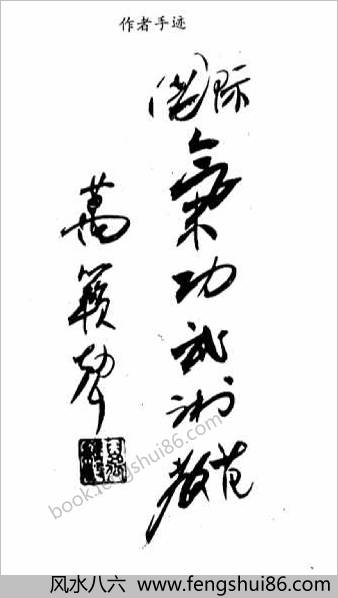 作者手迹
國际
氣功武術
教范
萬籟聲
book.fengshui86.com
风水八六 www.fengshui86.com